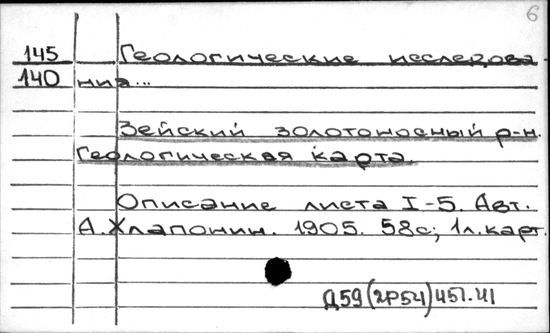 6
145 Геологические исследова
140 ния...
Зейский золотоносный р-н.
Геологическая карта.
Описание листа I-5. Авт.
А. Хлапонин. 1905. 58с; 1л.карт.
Д59(2Р54)451.41